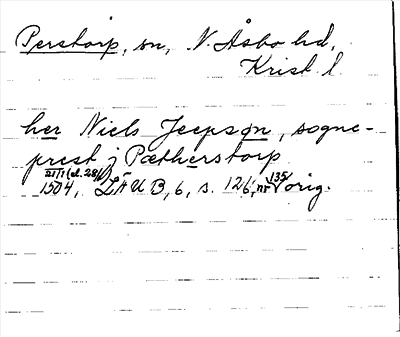 Perstorp, sn, N. Åsbo hd,
Krist. l.
her Niels Jeepsøn, sogne-
prest j Pætherstorp
21/1 (el. 28/1)
1504, LÄUB, 6, s. 126, nr 135, orig.